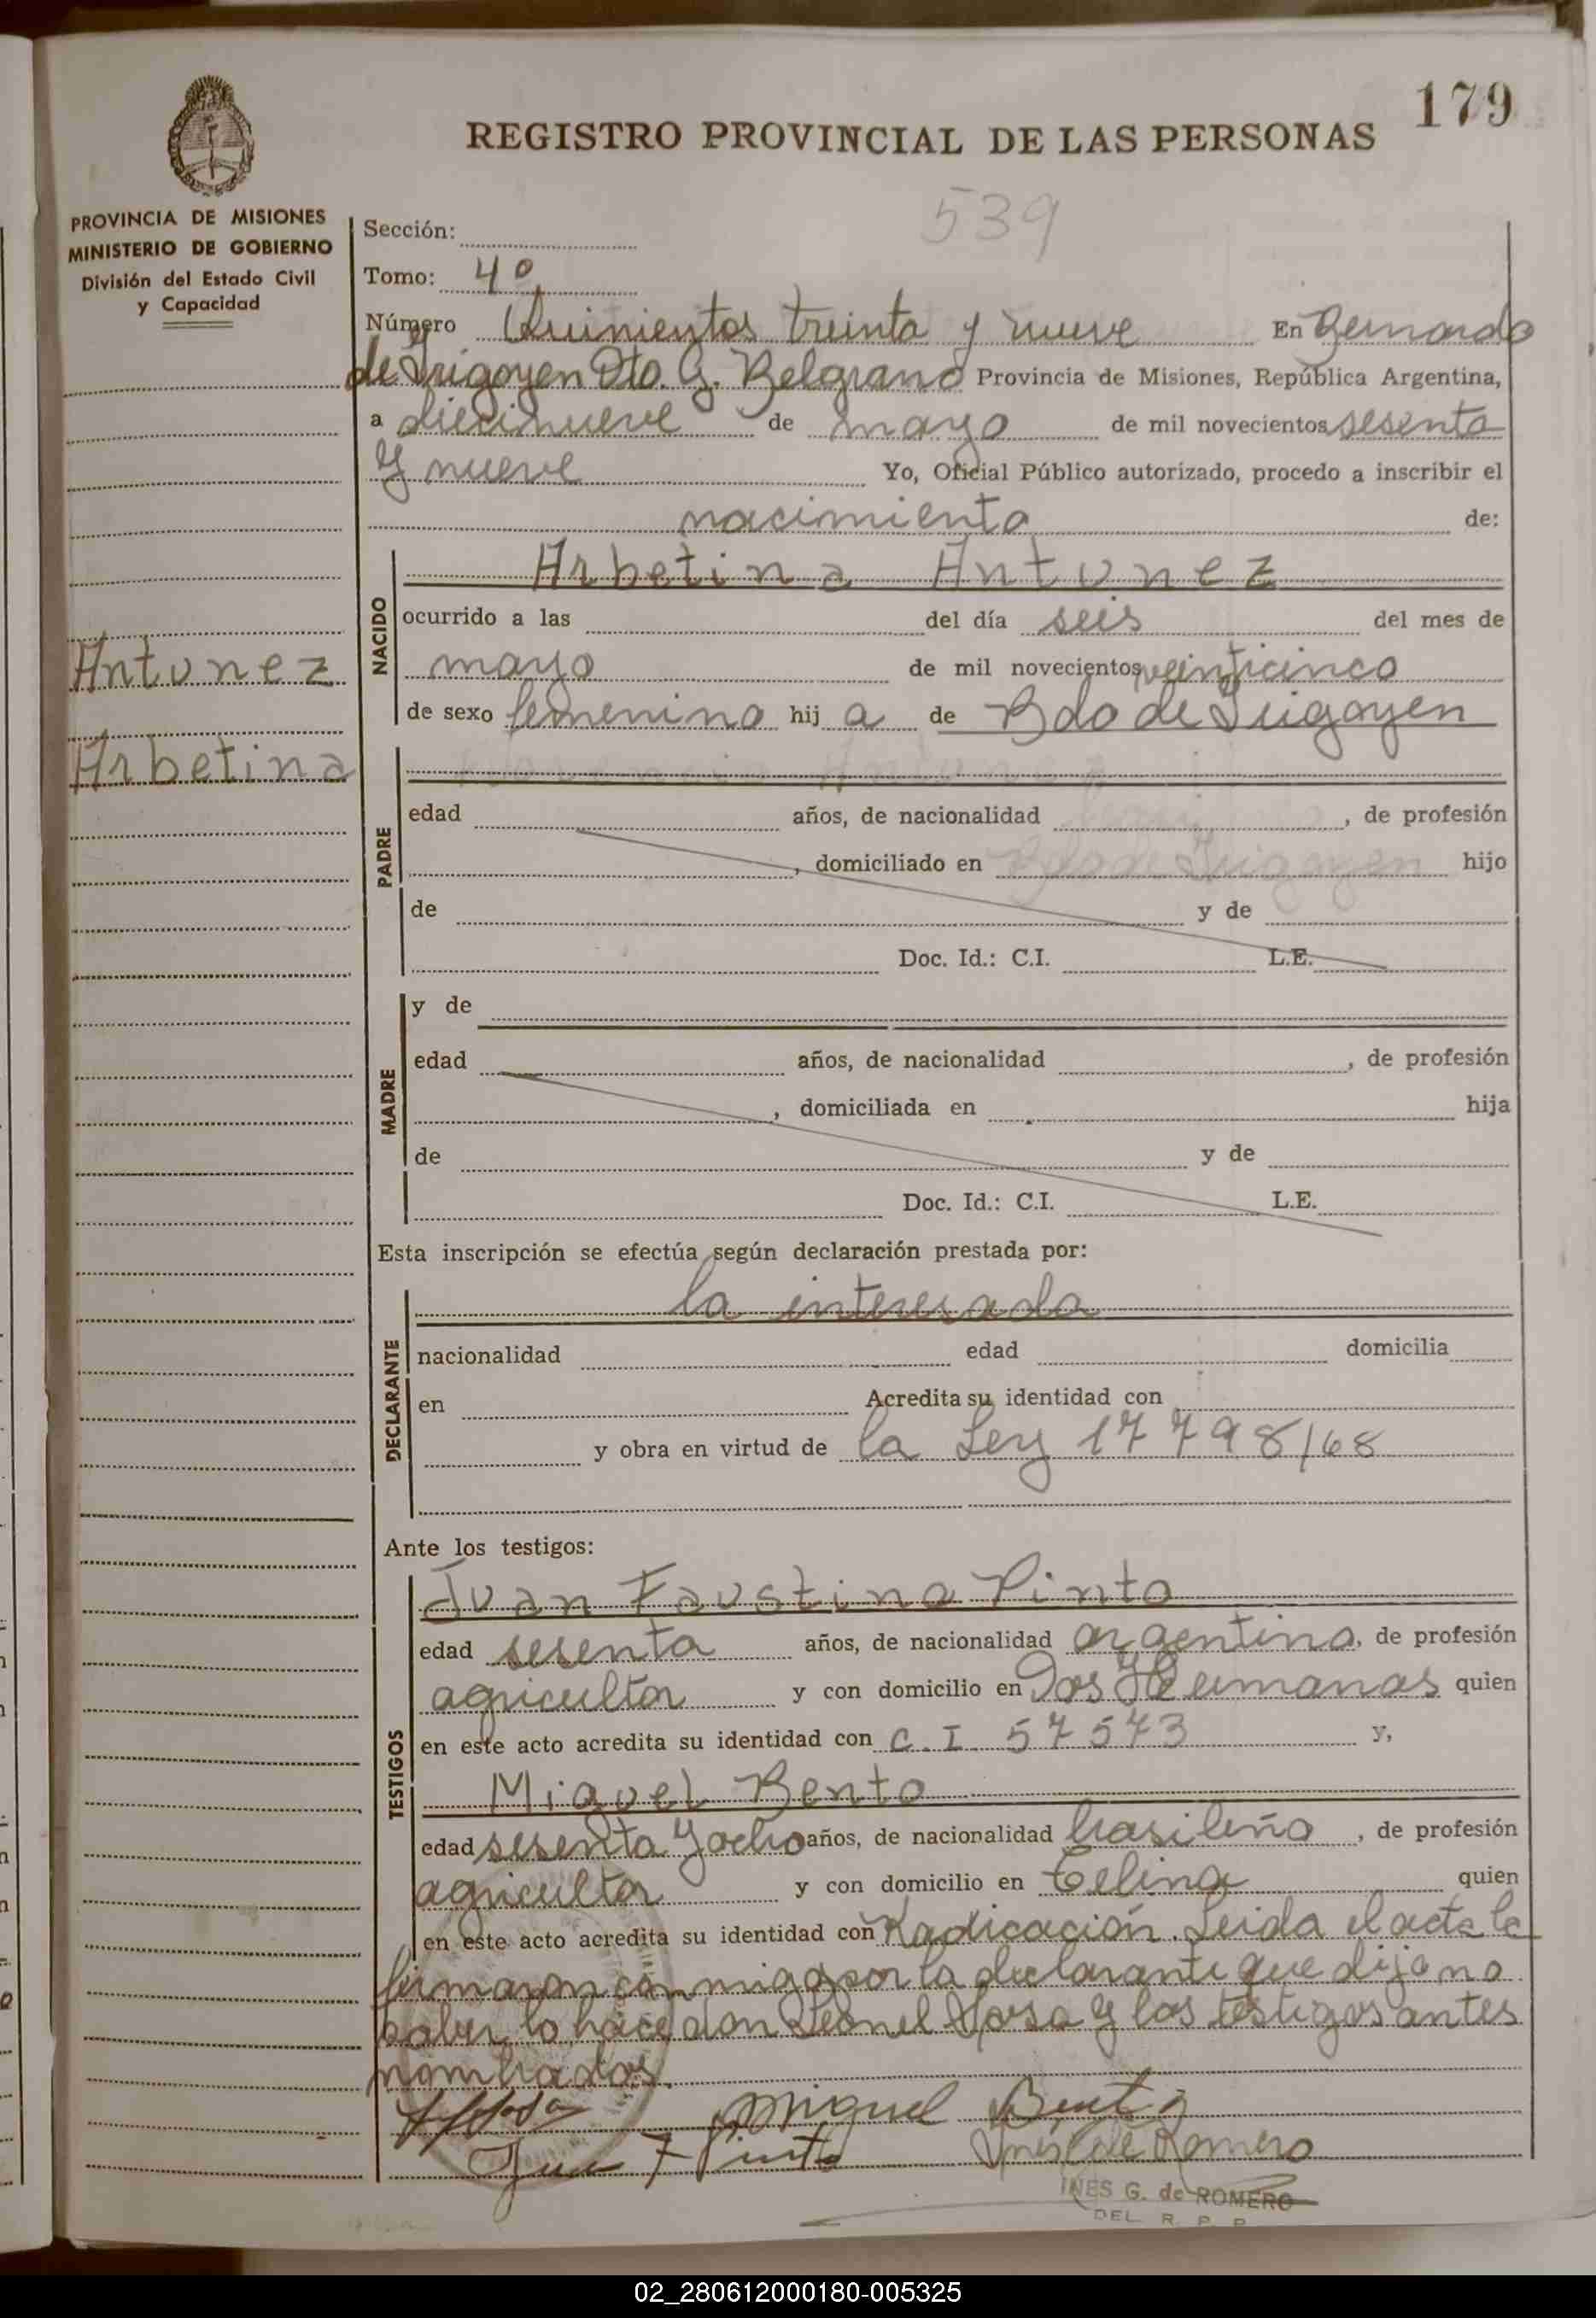 179
REGISTRO PROVINCIAL DE LAS PERSONAS
539
PROVINCIA DE MISIONES
MINISTERIO DE GOBIERNO
División del Estado Civil
y Capacidad
Sección:
Tomo: 4º
Número Quinientos treinta y nueve En Bernardo
de Irigoyen Dto. G. Belgrano Provincia de Misiones, República Argentina,
a diecinueve de mayo de mil novecientos sesenta
y nueve Yo, Oficial Público autorizado, procedo a inscribir el
nacimiento de:
NACIDO
Arbetina Antunez
ocurrido a las del día seis del mes de
mayo de mil novecientos veinticinco
de sexo femenino hij a de Bdo de Irigoyen
Antunez
Arbetina
PADRE
edad años, de nacionalidad , de profesión
, domiciliado en Bdo de Irigoyen hijo
de y de
Doc. Id.: C.I. L.E.
MADRE
y de
edad años, de nacionalidad , de profesión
, domiciliada en hija
de y de
Doc. Id.: C.I. L.E.
Esta inscripción se efectúa según declaración prestada por:
DECLARANTE
la interesada
nacionalidad edad domicilia
en Acredita su identidad con
y obra en virtud de la Ley 17798/68
Ante los testigos:
TESTIGOS
Juan Faustino Pinto
edad sesenta años, de nacionalidad argentino, de profesión
agricultor y con domicilio en Dos Hermanas quien
en este acto acredita su identidad con C.I. 57573 y,
Miguel Bento
edad sesenta y ocho años, de nacionalidad brasileño , de profesión
agricultor y con domicilio en Celina quien
en este acto acredita su identidad con Radicación. Leida el acta la
firmaron conmigo por la declarante que dijo no
saber lo hace don Leonel Rosa y los testigos antes
nombrados.
Miguel Bento
Juan F Pinto Inés G de Romero
INES G. de ROMERO
DEL R. P. P.
02_280612000180-005325